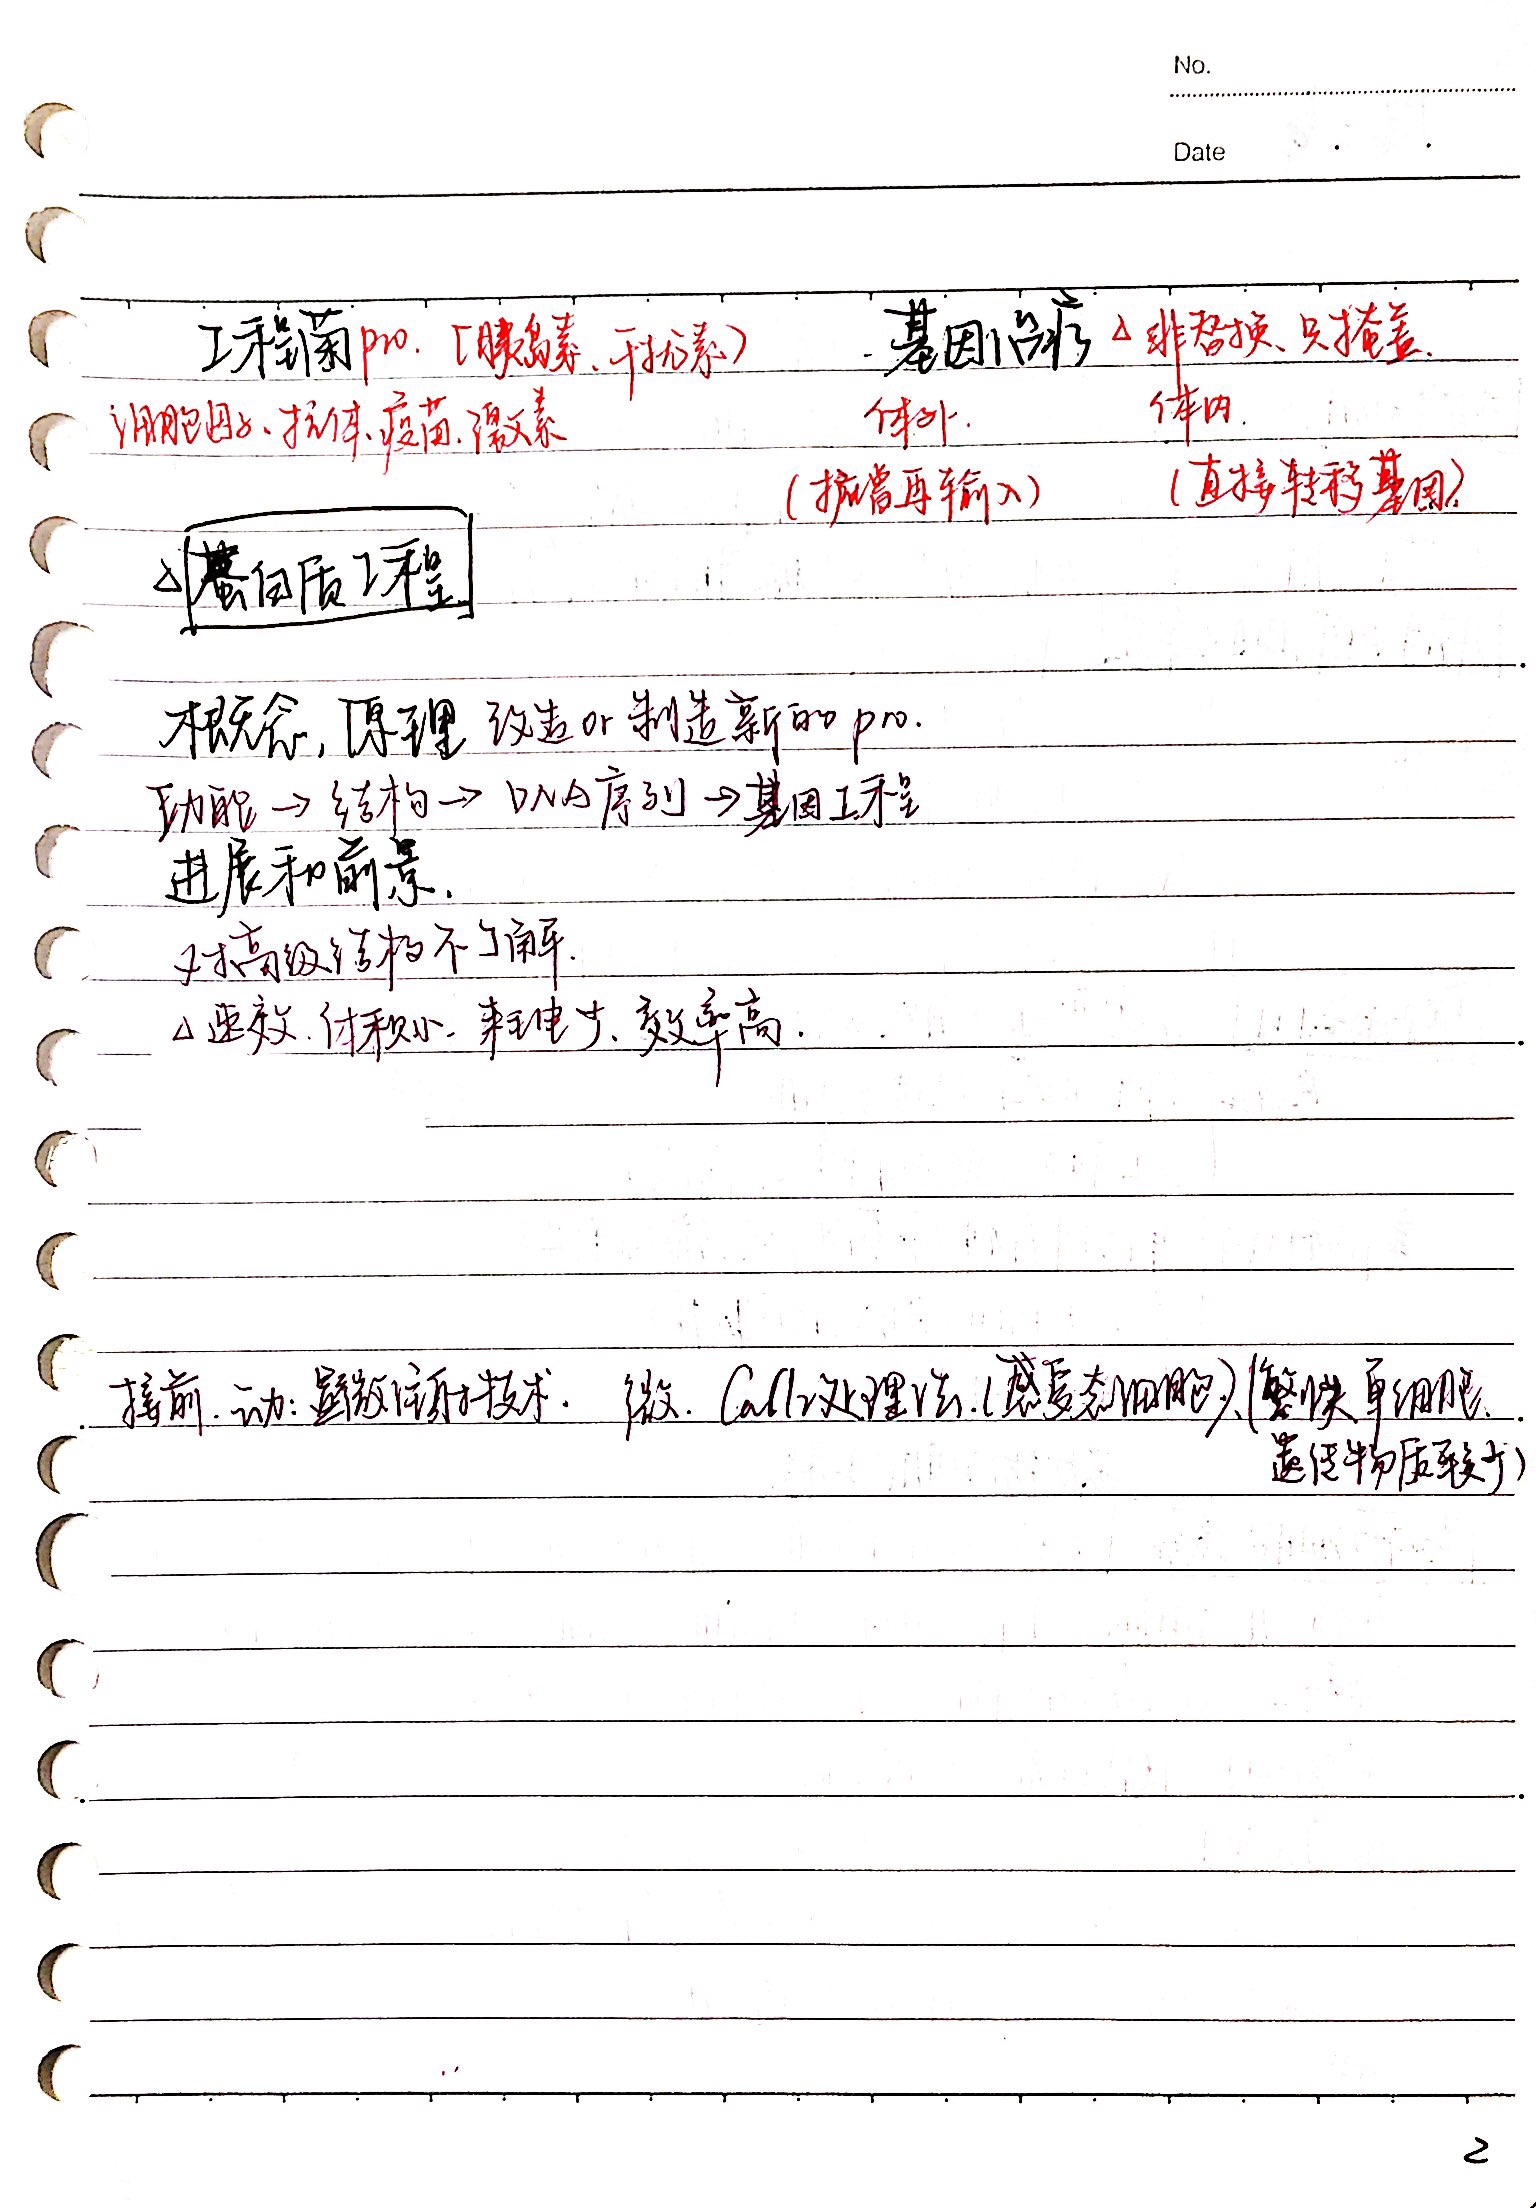 No.
Date
工程菌 pro. [胰岛素、干扰素) 基因治疗 △ 非替换、只掩盖.
细胞因子、抗体、疫苗、激素 体外. 体内.
(扩增再输入) (直接转移基因)
△ 蛋白质工程
概念, 原理 改造or制造新的pro.
功能→结构→DNA序列→基因工程
进展和前景.
对高级结构不了解.
△速效.体积小.耗电少、效率高.
接前.动:显微注射技术. 微. CaCl2处理法.(感受态细胞)、(繁快单细胞、
遗传物质较少)
2